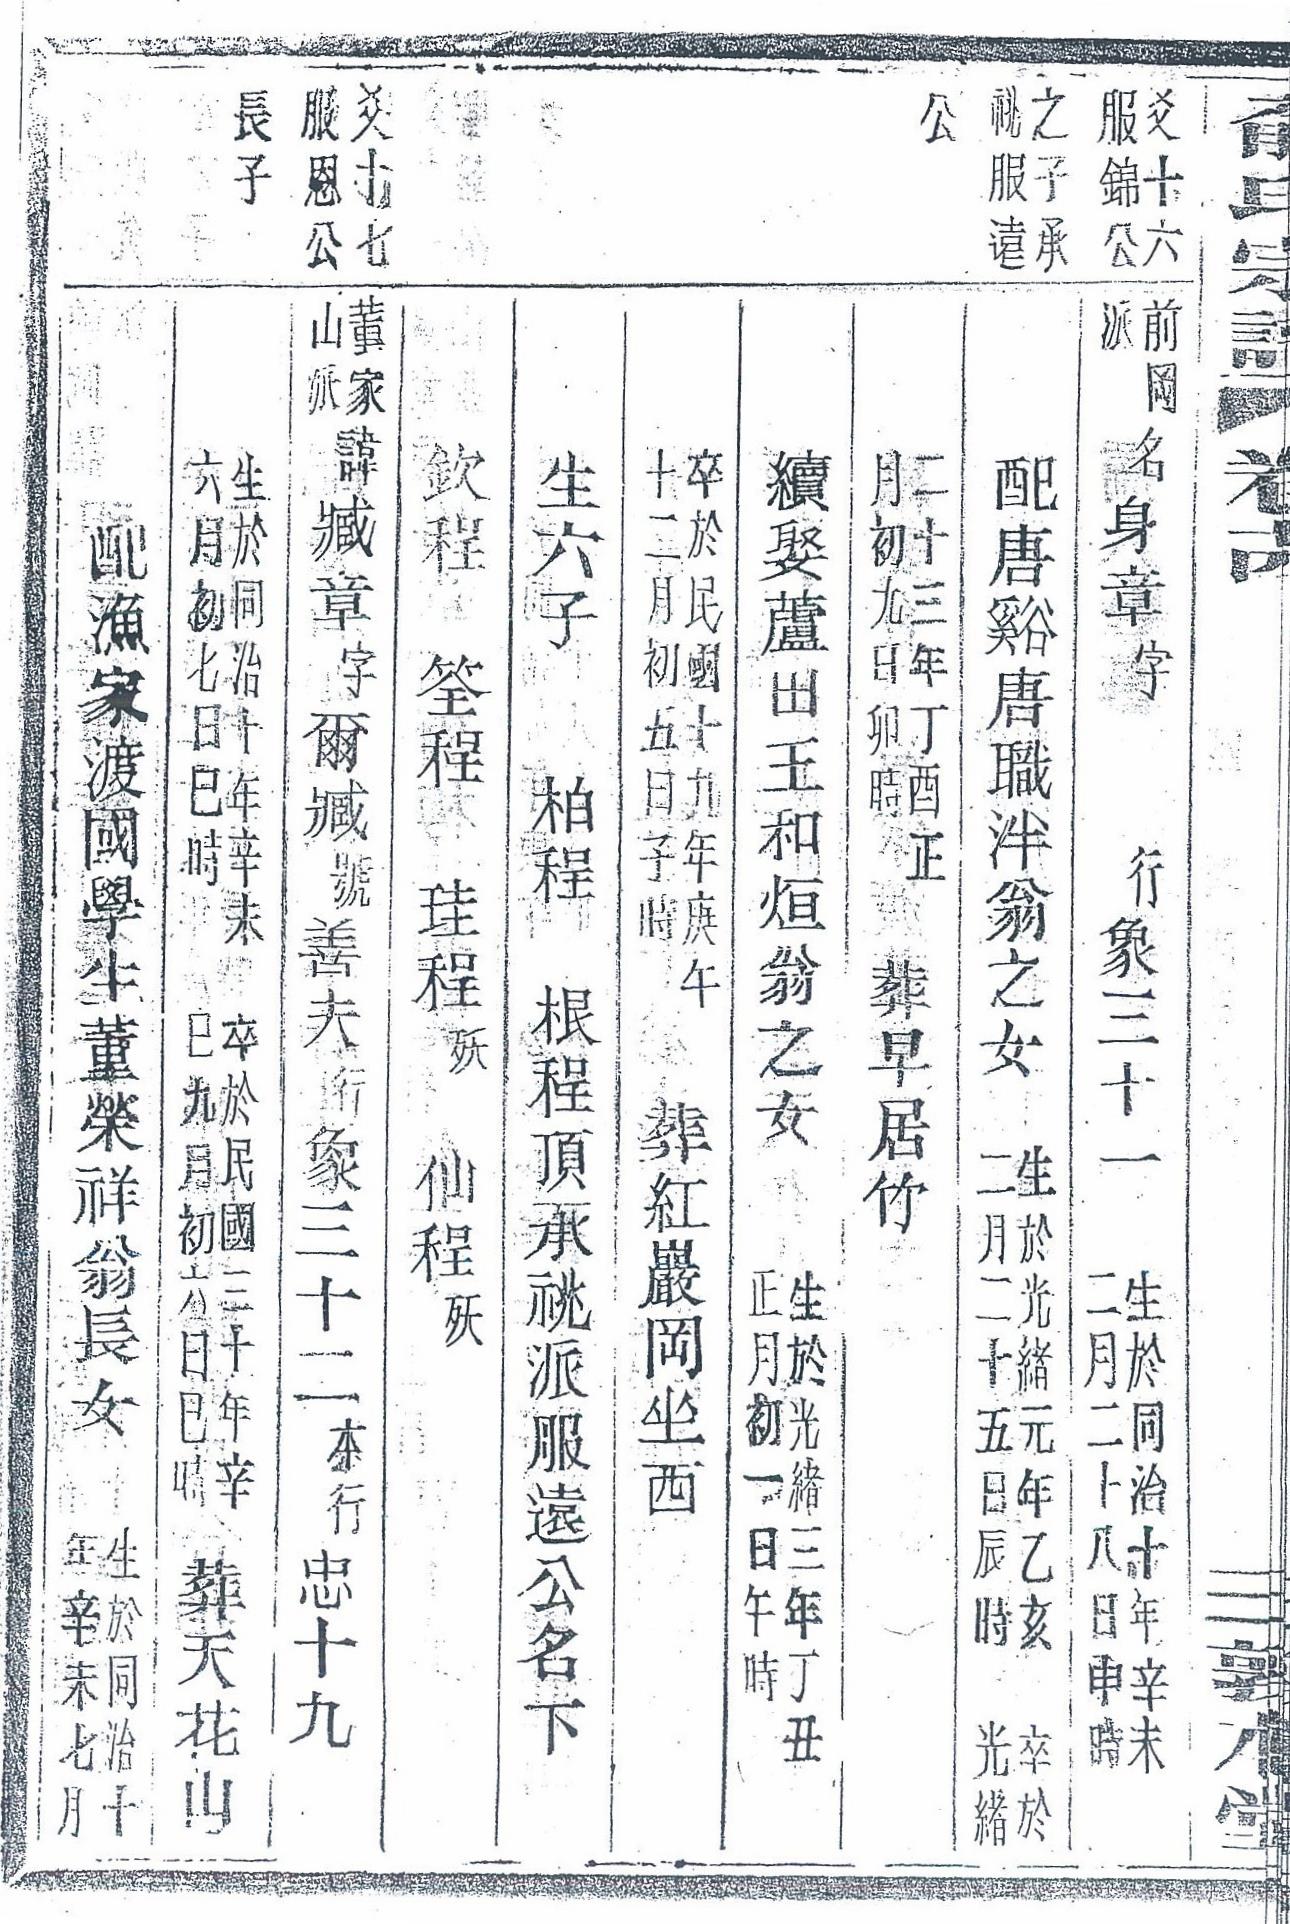 宗譜 卷六
爻十六
服錦公
之子承
祧服遠
公
前岡
派
名身章字 行象三十一 生於同治十年辛未
二月二十八日申時
配唐谿唐職泮翁之女 生於光緒元年乙亥
二月二十五日辰時 卒於
光緒
二十三年丁酉正
月初九日卯時 葬早居竹
續娶蘆田王和烜翁之女 生於光緒三年丁丑
正月初一日午時
卒於民國十九年庚午
十二月初五日子時 葬紅巖岡坐西
生六子 柏程 根程頂承祧派服遠公名下
欽程 筌程 珪程殀 仙程殀
爻十七
服恩公
長子
董家
山派
諱臧章字爾臧號善夫行象三十二本行忠十九
生於同治十年辛未
六月初七日巳時 卒於民國三十年辛
巳九月初六日巳時 葬天花山
配漁家渡國學生董榮祥翁長女 生於同治十
年辛未七月